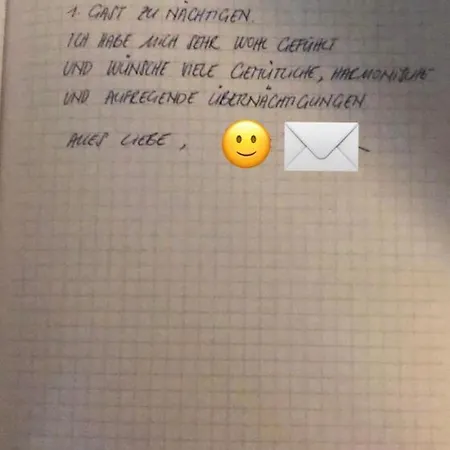 1. GAST ZU NÄCHTIGEN.
ICH HABE MICH SEHR WOHL GEFÜHLT
UND WÜNSCHE VIELE GEMÜTLICHE, HARMONISCHE
UND AUFREGENDE ÜBERNÄCHTIGUNGEN.
ALLES LIEBE,